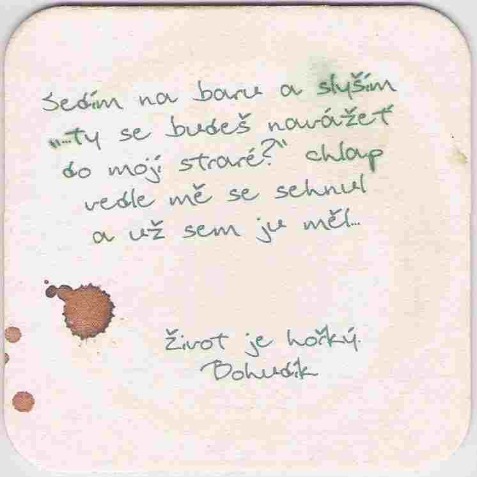 Sedím na baru a slyším
"...ty se budeš navážet
do mojí straré?" chlap
vedle mě se sehnul
a už sem ju měl...
Život je hořký.
Bohudík